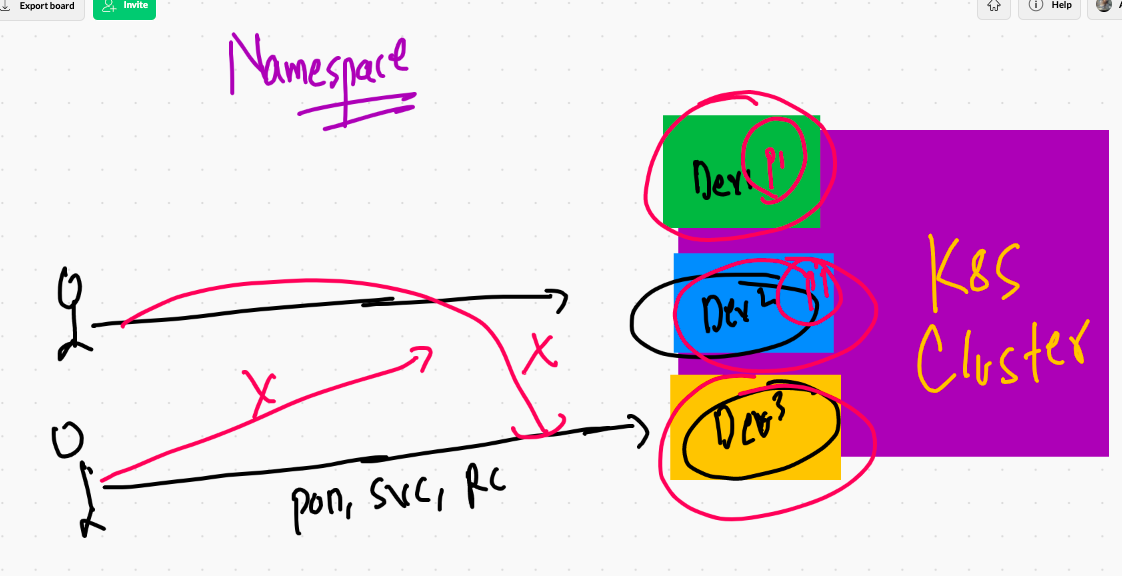 Export board
Invite
Help
Namespace
Dev1 P1
Dev2
Dev3
K8S
Cluster
pon, svc, RC